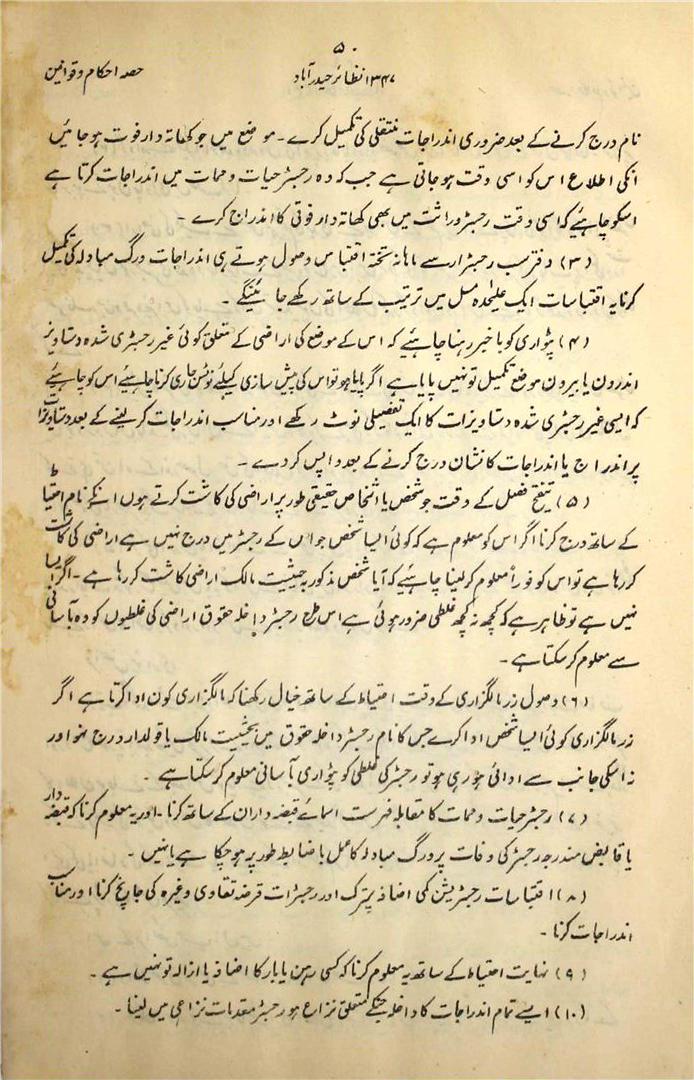 ۵۰
حصہ احکام و قوانین
۱۳۴۷ نظائر حیدرآباد
نام درج کرنے کے بعد ضروری اندراجات منتقلی کی تکمیل کرے ۔ موضع میں جو کھاتہ دار فوت ہو جائیں
انکی اطلاع اس کو اسی وقت ہو جاتی ہے جب کہ وہ رجسٹر حیات و ممات میں اندراجات کرتا ہے
اسکو چاہئیے کہ اسی وقت رجسٹر وراثت میں بھی کھاتہ دار فوتی کا اندراج کرے ۔
(۳) دفتر سب رجسٹرار سے ماہانہ تختہ اقتباس وصول ہوتے ہی اندراجات ورگ مبادلہ کی تکمیل
کرنا یہ اقتباسات ایک علیٰحدہ مسل میں ترتیب کے ساتھ رکھے جائینگے ۔
(۴) پٹواری کو باخبر رہنا چاہئیے کہ اس کے موضع کی اراضی کے متعلق کوئی غیر رجسٹری شدہ دستاویز
اندرون یا بیرون موضع تکمیل تو نہیں پایا ہے اگر پایا ہو تو اس کی پیش سازی کیلئے نوٹس جاری کرنا چاہئیے اس کو چاہئیے
کہ ایسی غیر رجسٹری شدہ دستاویزات کا ایک تفصیلی نوٹ رکھے اور مناسب اندراجات کر لینے کے بعد دستاویزات
پر اندراج یا اندراجات کا نشان درج کرنے کے بعد واپس کر دے ۔
(۵) تنقیح فصل کے وقت جو شخص یا اشخاص حقیقی طور پر اراضی کی کاشت کرتے ہوں انکے نام احتیاط
کے ساتھ درج کرنا اگر اس کو معلوم ہے کہ کوئی ایسا شخص جو اس کے رجسٹر میں درج نہیں ہے اراضی کی کاشت
کر رہا ہے تو اس کو فوراً معلوم کر لینا چاہئیے کہ آیا شخص مذکور بہ حیثیت مالک اراضی کاشت کر رہا ہے ۔ اگر ایسا
نہیں ہے تو ظاہر ہے کہ کچھ نہ کچھ غلطی ضرور ہوئی ہے اس طرح رجسٹر داخلہ حقوق اراضی کی غلطیوں کو وہ بآسانی
سے معلوم کر سکتا ہے ۔
(۶) وصول زر مالگزاری کے وقت احتیاط کے ساتھ خیال رکھنا کہ مالگزاری کون ادا کرتا ہے اگر
زر مالگزاری کوئی ایسا شخص ادا کرے جس کا نام رجسٹر داخلہ حقوق میں بحیثیت مالک یا قولدار درج نہو اور
نہ اسکی جانب سے ادائی ہو رہی ہو تو رجسٹر کی غلطی کو پٹواری بآسانی معلوم کر سکتا ہے ۔
(۷) رجسٹر حیات و ممات کا مقابلہ فہرست اسمائے قبضہ داران کے ساتھ کرنا ۔ اور یہ معلوم کرنا کہ قبضہ دار
یا قابض مندرجہ رجسٹر کی وفات پر ورگ مبادلہ کا عمل باضابطہ طور پر ہو چکا ہے یا نہیں ۔
(۸) اقتباسات رجسٹریشن کمی اضافہ پترک اور رجسٹرات قرضہ تقاوی وغیرہ کی جانچ کرنا اور مناسب
اندراجات کرنا ۔
(۹) نہایت احتیاط کے ساتھ یہ معلوم کرنا کہ کسی رہن یا بار کا اضافہ یا ازالہ تو نہیں ہے ۔
(۱۰) ایسے تمام اندراجات کا داخلہ جنکے متعلق نزاع ہو رجسٹر مقدمات نزاعی میں لینا ۔